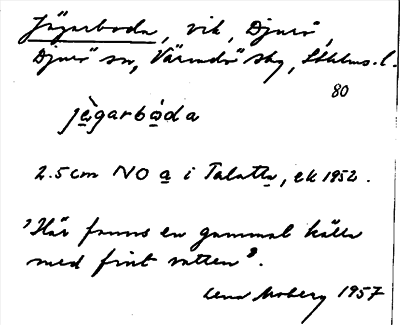 Jägarboda, vik, Djurö,
Djurö sn, Värmdö skg, Sthlms. l.
80
jègarbóda
2.5 cm NO a i Talatta, ek 1952.
"Här fanns en gammal källa
med fint vatten".
Lena Moberg 1957